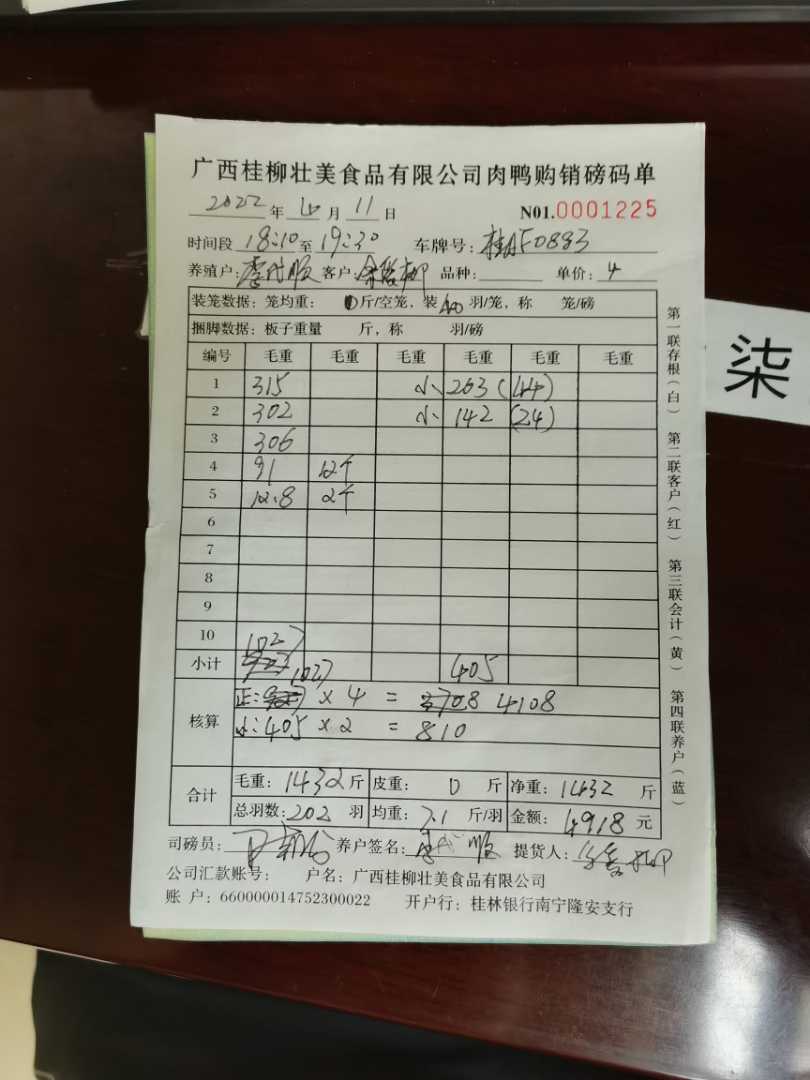 广西桂柳壮美食品有限公司肉鸭购销磅码单
2022年 4月 11日 N01.0001225
时间段 18:10至19:30 车牌号: 桂AF0883
养殖户: 李 顺 客户: 柳 品种: 单价: 4
装笼数据: 笼均重: 0斤/空笼, 装 羽/笼, 称 笼/磅
捆脚数据: 板子重量 斤, 称 羽/磅
编号 毛重 毛重 毛重 毛重 毛重 毛重
1 315 小 263 (44)
2 302 小 142 (24)
3 306
4 91 12个
5 12.8 2个
6
7
8
9
10
小计 1027 1027 405
核算 正: × 4 = 4108
小: 405 × 2 = 810
合计 毛重: 1432斤 皮重: 0 斤 净重: 1432 斤
总羽数: 202 羽 均重: 7.1 斤/羽 金额: 4918 元
司磅员: 养户签名: 李 顺 提货人: 柳
公司汇款账号: 户名: 广西桂柳壮美食品有限公司
账 户: 660000014752300022 开户行: 桂林银行南宁隆安支行
第一联存根(白) 第二联客户(红) 第三联会计(黄) 第四联养户(蓝)
柒